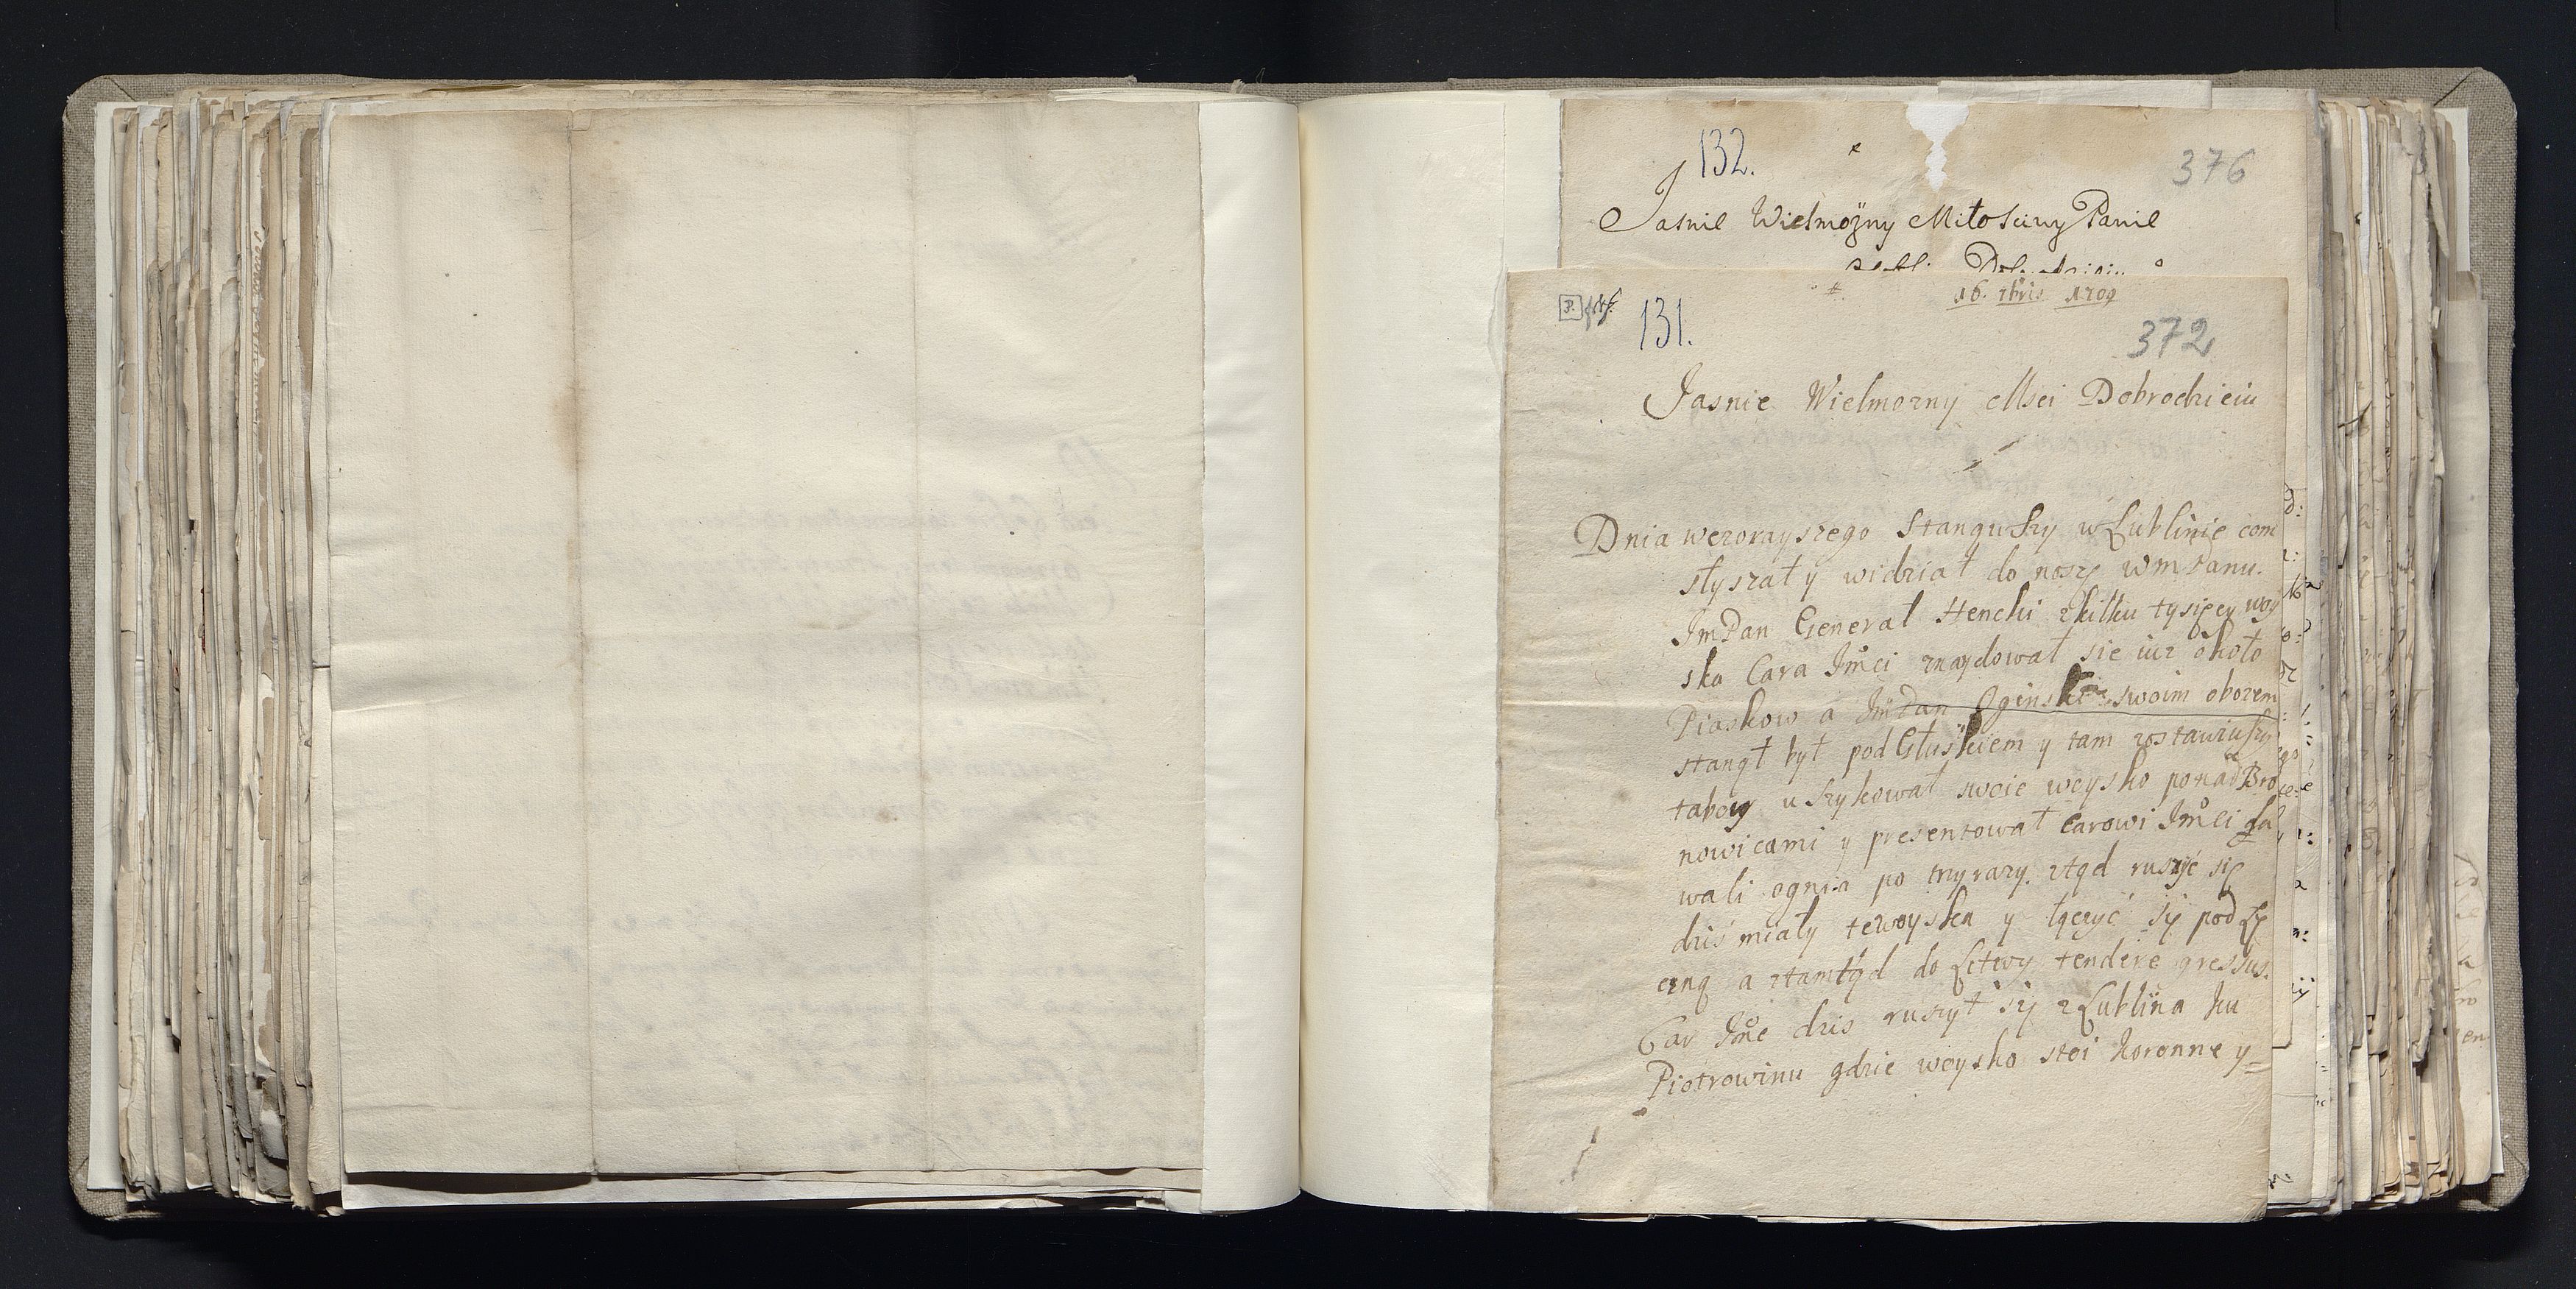 132.
376
Jasnie Wielmożny Miłosciwy Panie
16. 7bris 1709
131.
372
Jasnie Wielmozny Msci Dobrodzieiu
Dnia wczorayszego Stanąwszy w Lublinie com
słyszał y widział do noszę WmPanu.
JmPan Generał Henski z kilku tysięcy woy
ska Cara Jmci znaydował się iuz około
Piaskow a JmPan Oginski z swoim obozem
stanął był pod Głuskiem y tam zostawiwszy
tabory uszykował swoie woysko ponad Bro
nowicami y prezentował Carowi Jmci da
wali ognia po trzy razy. ztąd ruszyć się
dziś miały te woyska y łączyć się pod Łę
czną a ztamtąd do Litwy tendere gressus.
Car Jmc dzis ruszył się z Lublina ku
Piotrowinu gdzie woysko stoi Koronne y